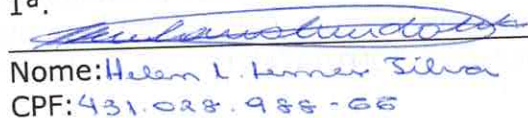 1ª.
Nome: Helen L. Lerner Silva
CPF: 431.028.988-66